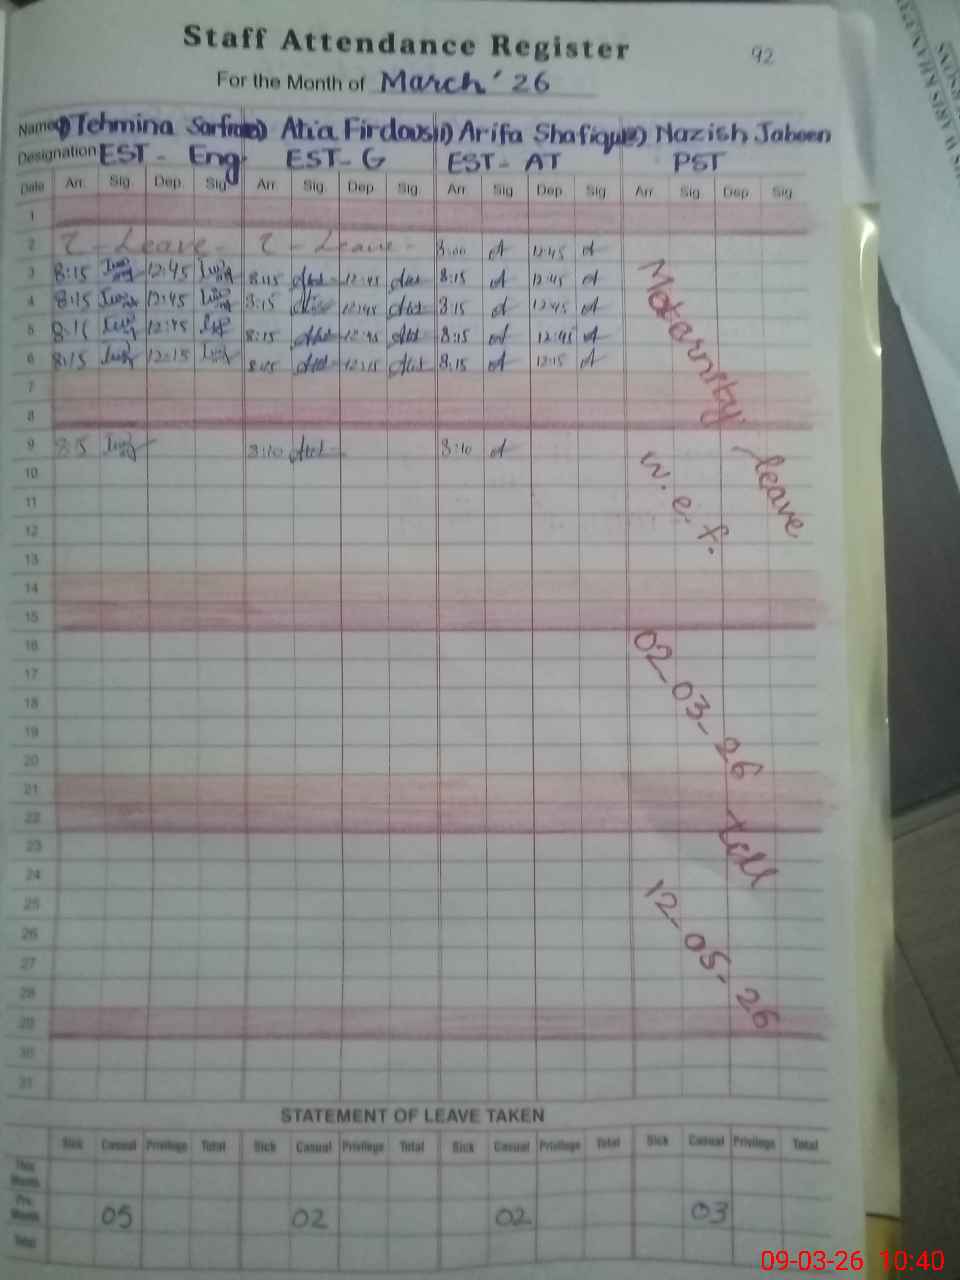 Staff Attendance Register
92
For the Month of March' 26
Name Tehmina Sarfraz Atia Firdous Arifa Shafique Nazish Jabeen
Designation EST - Eng EST - G EST - AT PST
Date Arr. Sig. Dep. Sig. Arr. Sig. Dep. Sig. Arr. Sig. Dep. Sig. Arr. Sig. Dep. Sig.
1
2 - Leave - - Leave - 12:45
3 8:15 12:45 8:15 12:45 8:15 12:45
4 8:15 12:45 8:15 12:45 8:15 12:45
5 12:45 8:15 12:45 8:15 12:45
6 8:15 12:15 8:15 12:15 8:15 12:15
7
8
9 8:10 8:10
10
11
12
13
14
15
16
17
18
19
20
21
22
23
24
25
26
27
28
29
30
31
leave
w.e.f.
02-03-26
12-05-26
STATEMENT OF LEAVE TAKEN
Sick Casual Privilege Total Sick Casual Privilege Total Sick Casual Privilege Total Sick Casual Privilege Total
This Month
Pre. Month 05 02 02 03
Total
09-03-26 10:40